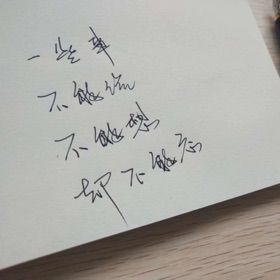 一些事
不能做
不能想
却不能忘